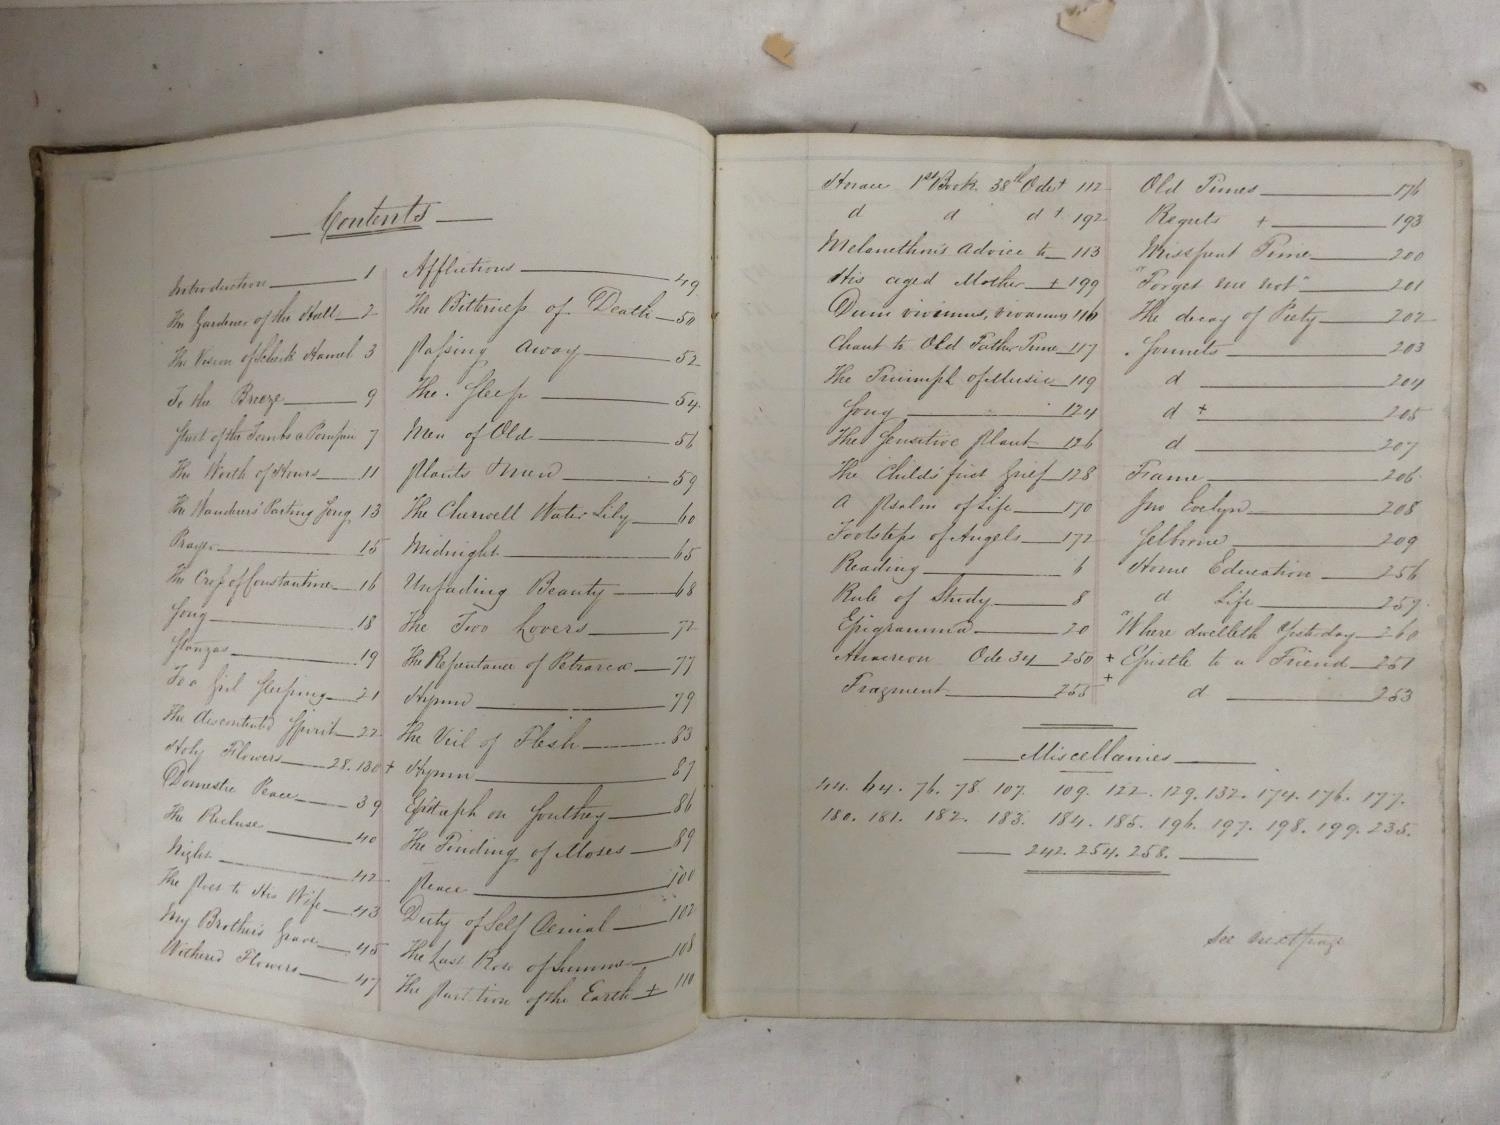 Contents
Introduction 1
The Gardener of the Hall 2
The Vision of Scheik Hamel 3
To the Breeze 9
of the Tombs a Pompeii 7
The Worth of Hours 11
The Wanderer's Parting Song 13
Prayer 15
The Cross of Constantine 16
Song 18
Stanzas 19
To a Girl Sleeping 21
The discontented Spirit 22
Holy Flowers 28. 130 +
Domestic Peace 39
The Recluse 40
Night 42
The Poet to His Wife 43
My Brother's Grave 45
Withered Flowers 47
Afflictions 49
The Bitterness of Death 50
Passing Away 52
The Sleep 54
Men of Old 56
Plants Men 59
The Cherwell Water Lily 60
Midnight 65
Unfading Beauty 68
The Two Lovers 72
The Repentance of Petrarca 77
Hymn 79
The Veil of Flesh 83
Hymn 87
Epitaph on Southey 86
The Finding of Moses 89
Peace 100
Duty of Self Denial 102
The Last Rose of Summer 108
The Partition of the Earth + 110
Horace 1st Book 38th Ode + 112
d d d + 192
Melancthon's advice to 113
His aged Mother + 199
Dum vivimus, vivamus 116
Chant to Old Father Time 117
The Triumph of Music 119
Song 124
The Sensitive Plant 126
The Child's first Grief 128
A Psalm of Life 170
Footsteps of Angels 172
Reading 6
Rule of Study 8
Epigramma 20
Anacreon Ode 34 250 +
Fragment 255 +
Old Times 176
Regrets + 193
Misspent Time 200
"Forget me not" 201
The decay of Piety 202
Sonnets 203
d 204
d + 205
d 207
Fame 206
Jno Evelyn 208
Selborne 209
Home Education 256
d Life 259
"Where dwelleth Yesterday 260
Epistle to a Friend 251
d 253
Miscellanies
44. 64. 76. 78. 107. 109. 122. 129. 132. 174. 176. 177.
180. 181. 182. 183. 184. 185. 196. 197. 198. 199. 235.
242. 254. 258.
See next page